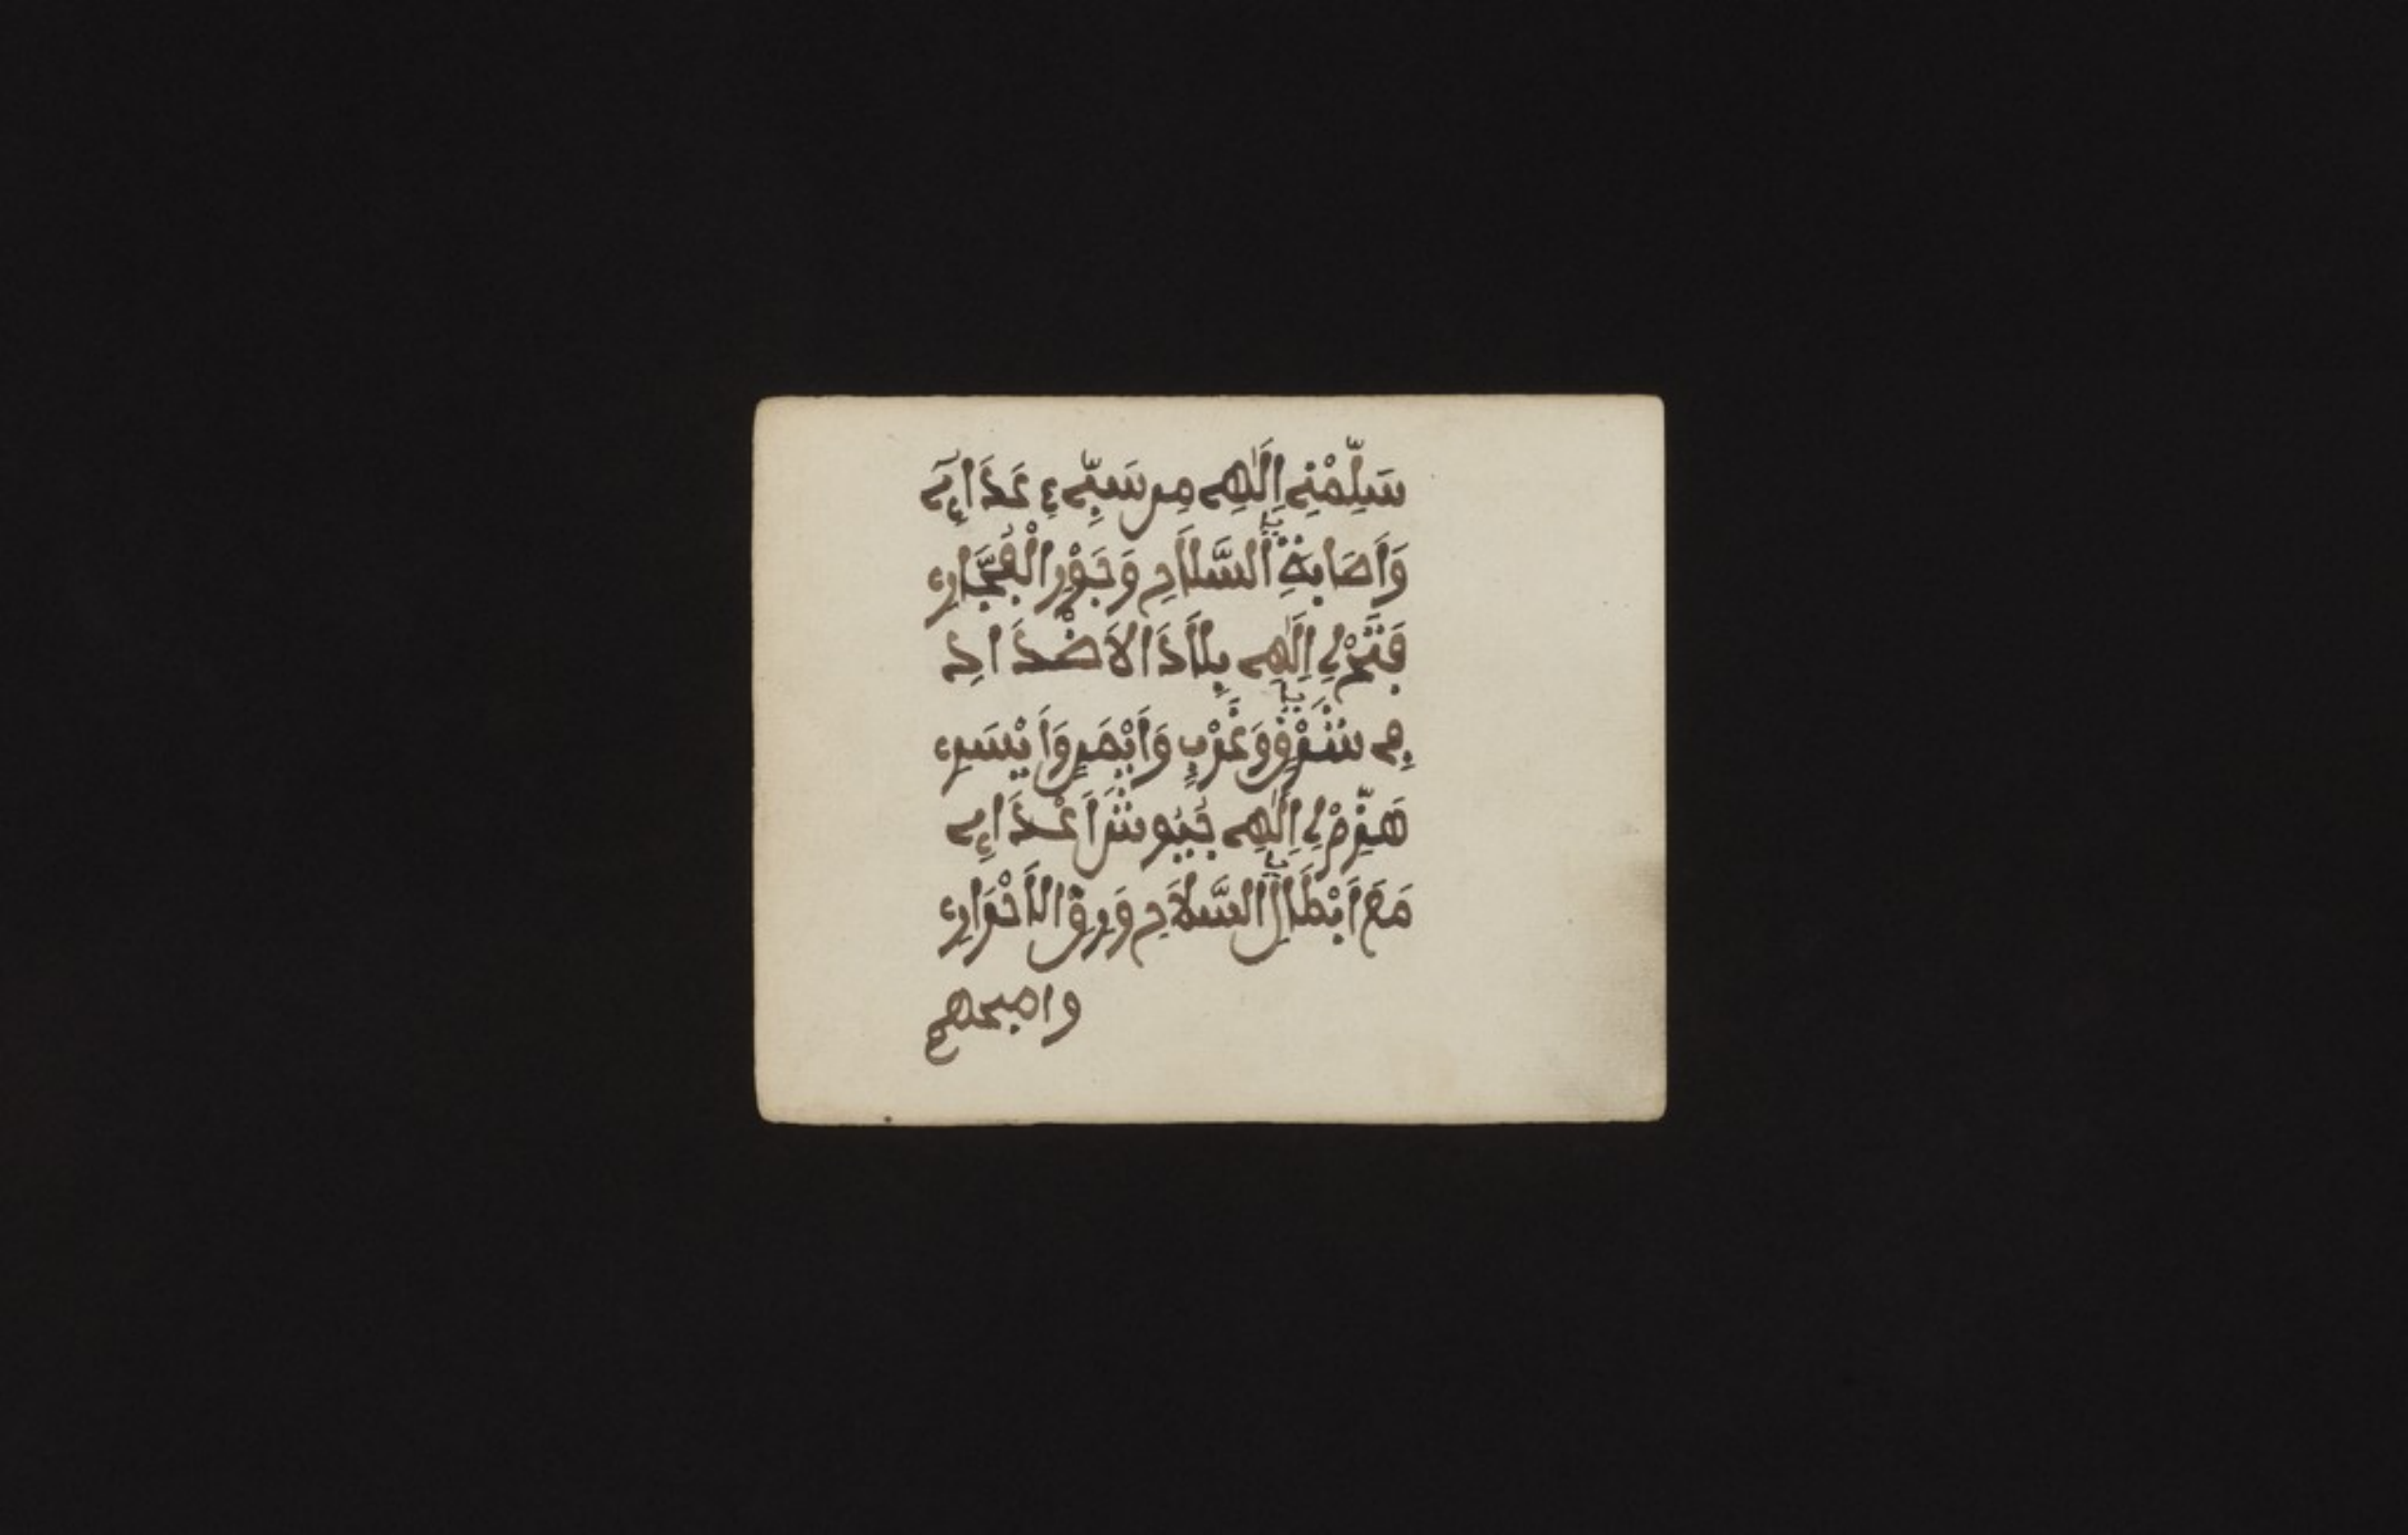 سَلِّمْنِے إِلَٰهِے مِن سَيِّےءِ عَذَابِے
وَأَصَابَةِ السَّلَاحِ وَجَوْرِ الْفُجَّارِ
فَتِّحْ لِے إِلَٰهِے بِلَادَ الاَضْدَادِ
فِے شَرْقٍ وَغَرْبٍ وَأَيْمَنٍ وَأَيْسَرِ
هَزِّمْ لِے إِلَٰهِے جُيُوشَ أَعْدَاءِے
مَعَ أَبْطَالِ السَّلَاحِ وَرِقِّ الْأَحْرَارِ
وامبحهم